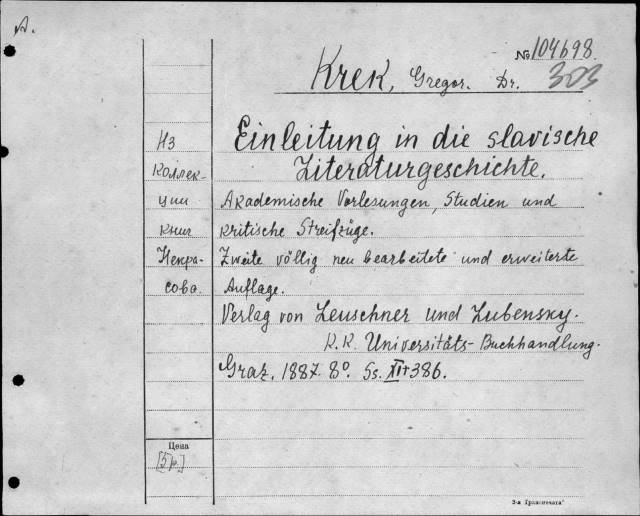 А.
№ 104698.
Krek, Gregor. Dr. 303
Из
Коллек-
ции
книг
Некра-
сова.
Einleitung in die slavische
Literaturgeschichte.
Akademische Vorlesungen, Studien und
kritische Streifzüge.
Zweite völlig neu bearbeitete und erweiterte
Auflage.
Verlag von Leuschner und Lubensky.
K. K. Universitäts-Buchhandlung.
Graz, 1887. 8°. Ss. XI+386.
Цена
[5 р.]
3-я Гралипечата"